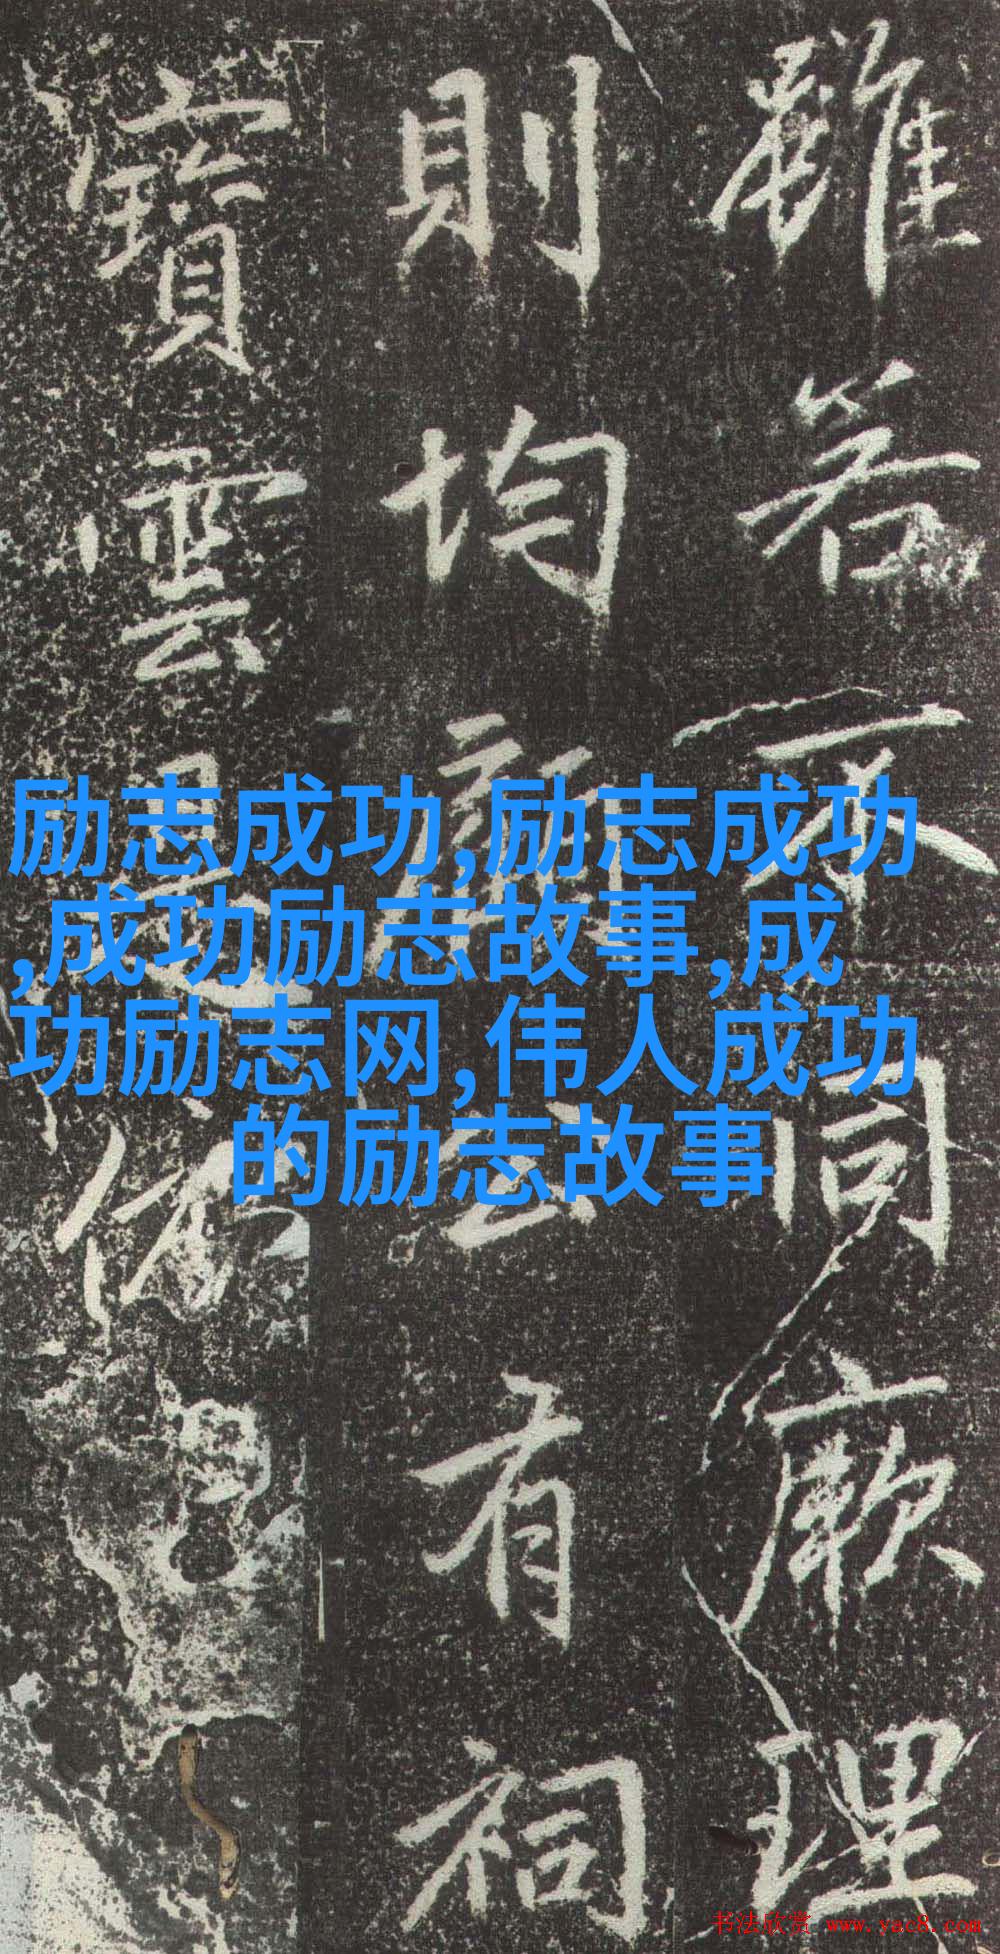 雖若不同厥理
則均云有祠
寶雲
励志成功,励志成功
,成功励志故事,成
功励志网,伟人成功
的励志故事
书法欣赏 www.yac8.com